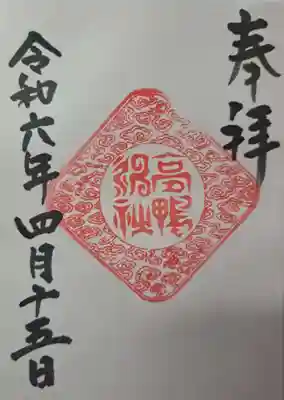 奉拝
高鴨神社
令和六年四月十五日